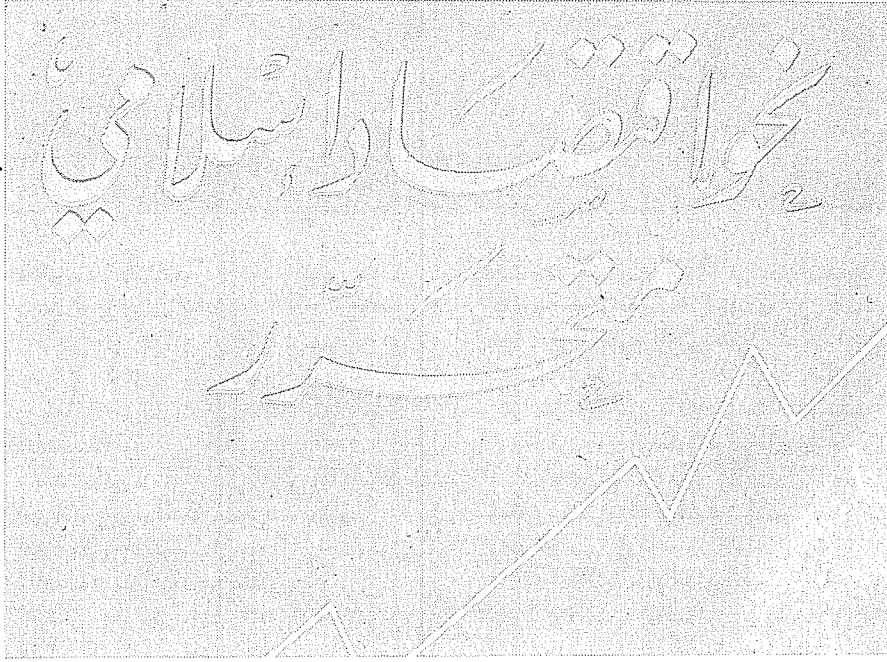 نحو اقتصاد إسلامي
متحرر